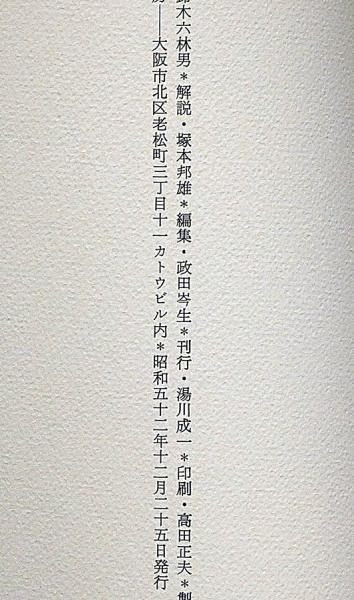 鈴木六林男＊解説・塚本邦雄＊編集・政田岑生＊刊行・湯川成一＊印刷・高田正夫＊製
房――大阪市北区老松町三丁目十一カトウビル内＊昭和五十二年十二月二十五日発行